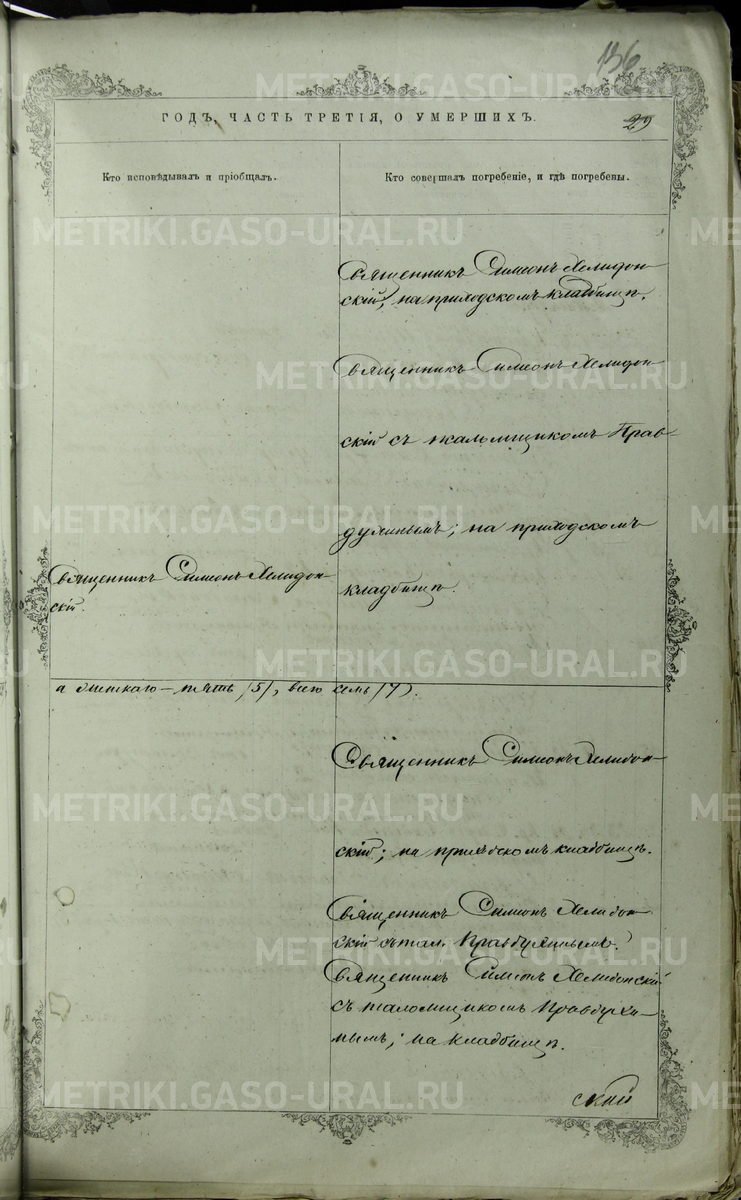 136
ГОДЪ, ЧАСТЬ ТРЕТІЯ, О УМЕРШИХЪ.
29
Кто исповѣдывалъ и пріобщалъ.
Кто совершалъ погребеніе, и гдѣ погребены.
Священникъ Симеонъ Хелидон-
скій, на приходскомъ кладбищѣ.
Священникъ Симеонъ Хелидон-
скій съ псаломщикомъ Прав-
духинымъ; на приходскомъ
кладбищѣ.
Священникъ Симеонъ Хелидон-
скій.
а женскаго — пять /5/, всего семь /7/.
Священникъ Симеонъ Хелидон-
скій; на приходскомъ кладбищѣ.
Священникъ Симеонъ Хелидон-
скій съ псал. Правдухинымъ.
Священникъ Симеонъ Хелидонскій
съ псаломщикомъ Правдухи-
нымъ; на кладбищѣ.
скій
METRIKI.GASO-URAL.RU